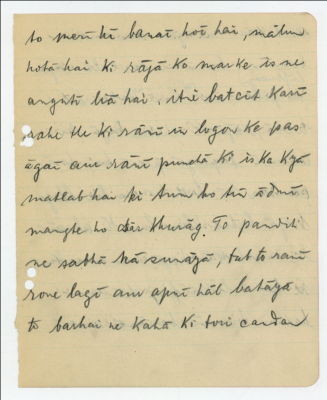 to merī hī banāī hoī hai, mālum
hotā hai ki rājā ko marke is ne
angutī līā hai, itnī batcīt kar
rahe the ki rānī un logon ke pas
āgaī aur rānī puncha ki is ka kya
matlab hai ki tum ho tīn ādmī
mangte ho aur khurāg. To pandit
ne sabhā kā sunāyā, tab to ranī
rone lagī aur apnī hāl batāyā
to barhai ne kahā ki tori candan